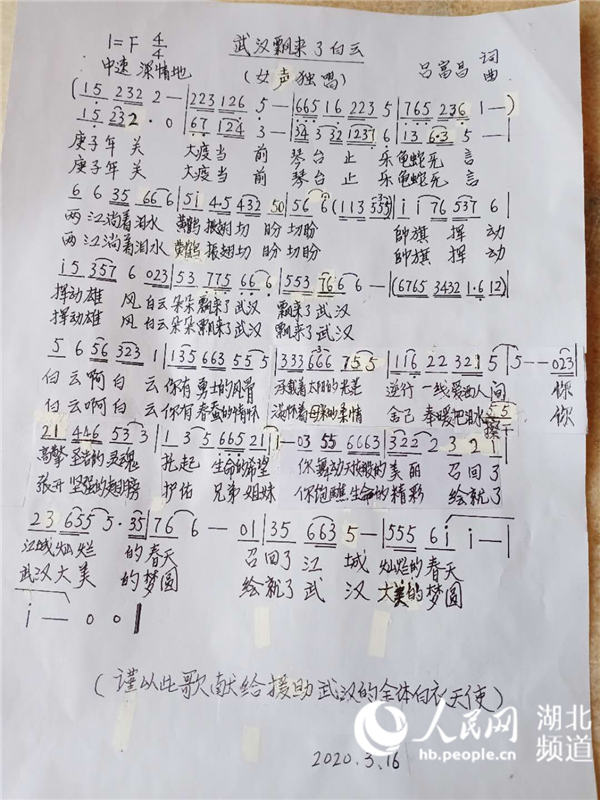 1=F 4/4 武汉飘来了白云
中速 深情地 (女声独唱) 吕富昌 词曲
(15 232 2 — | 223 126 5 — | 665 16 223 5 | 765 236 1 — )
15 232 · 0 | 67 124 3 — | 34 3 32 1237 6 | 13 6·3 5 —
庚子年关 大疫当前 琴台止乐龟蛇无言
庚子年关 大疫当前 琴台止乐龟蛇无言
6 6 35 66 6 | 51 45 432 50 | 56 6 (113 555) | i i 76 537 6 |
两江淌着泪水 黄鹤振翅切盼切盼 帅旗挥动
两江淌着泪水 黄鹤振翅切盼切盼 帅旗挥动
i5 357 6 023 | 53 775 66 6 | 553 766 6 — | (6765 3432 1·6 12) |
挥动雄风白云朵朵飘来了武汉 飘来了武汉
挥动雄风白云朵朵飘来了武汉 飘来了武汉
5 6 56 323 1 | 135 663 55 5 | 333 666 755 | 116 22 321 5 | 5 — — 023 |
白云啊白云你有勇士的风骨 承载着太阳的光芒 逆行一线爱洒人间 你
白云啊白云你有春蚕的情怀 满怀着母亲的柔情 舍己奉暖把泪水擦干 你
55
21 446 53 3 | 1 3 5 665 21 | 1 — 03 55 6663 | 3222 3 21 |
高擎圣洁的灵魂 托起生命的希望 你舞动天使般的美丽 召回了
张开坚强的翅膀 护佑兄弟姐妹 你饱蘸生命的精彩 绘就了
23 655 5· 35 | 76 6 — 01 | 35 663 5 — | 555 6i i — |
江城灿烂的春天 召回了江城灿烂的春天
武汉大美的梦圆 绘就了武汉大美的梦圆
i — 0 0 ‖
(谨以此歌献给援助武汉的全体白衣天使)
2020.3.16
人民网 湖北频道
hb.people.cn